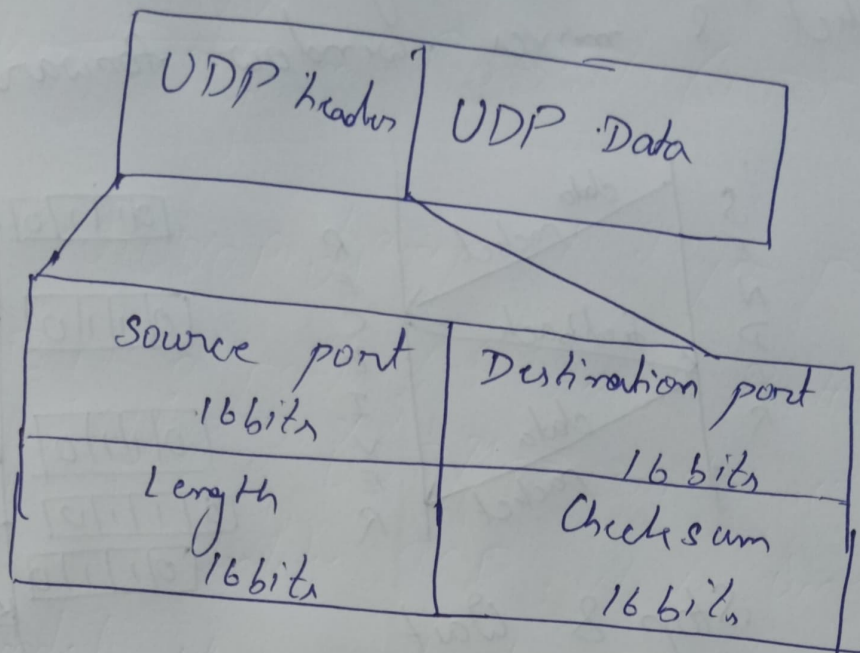 UDP header
UDP Data
Source port
16 bits
Destination port
16 bits
Length
16 bits
Checksum
16 bits